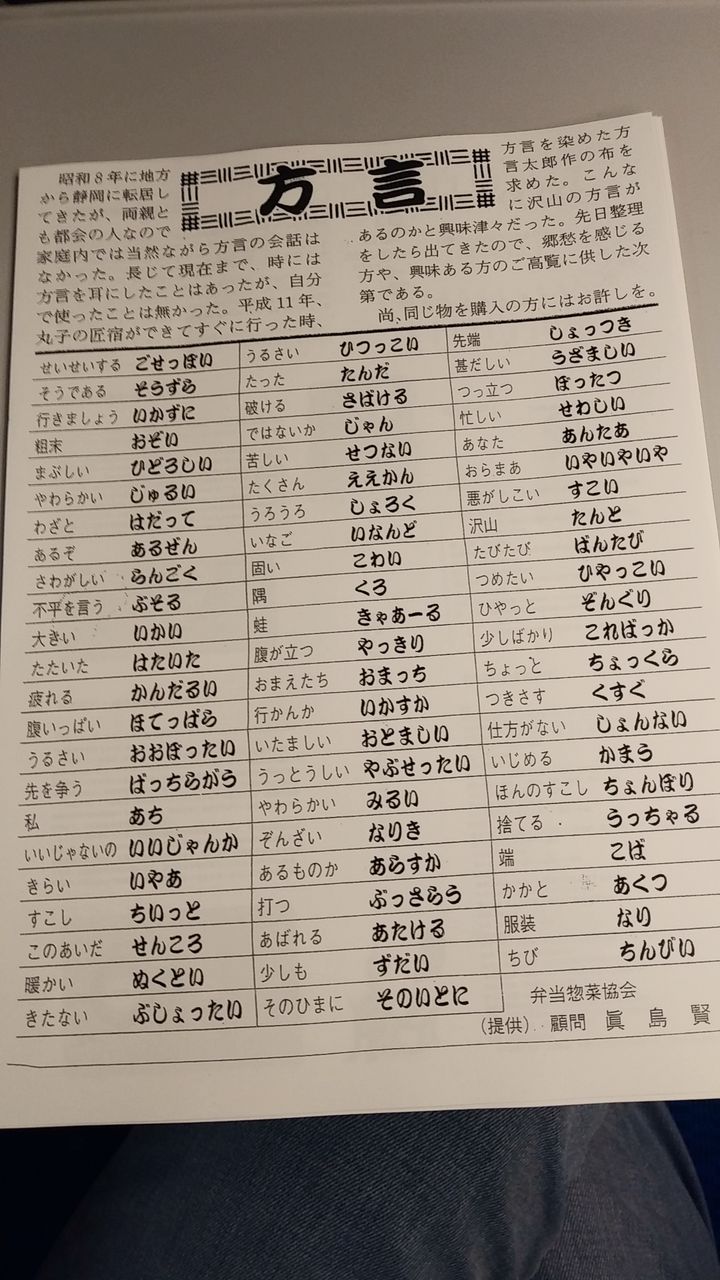 方言
昭和8年に地方
から静岡に転居し
てきたが、両親と
も都会の人なので
家庭内では当然ながら方言の会話は
なかった。長じて現在まで、時には
方言を耳にしたことはあったが、自分
で使ったことは無かった。平成11年、
丸子の匠宿ができてすぐに行った時、
方言を染めた方
言太郎作の布を
求めた。こんな
に沢山の方言が
あるのかと興味津々だった。先日整理
をしたら出てきたので、郷愁を感じる
方や、興味ある方のご高覧に供した次
第である。
尚、同じ物を購入の方にはお許しを。
せいせいする ごせっぽい
そうである そうずら
行きましょう いかずに
粗末 おぞい
まぶしい ひどろしい
やわらかい じゅるい
わざと はだって
あるぞ あるぜん
さわがしい らんごく
不平を言う ぶそる
大きい いかい
たたいた はたいた
疲れる かんだるい
腹いっぱい ほてっぱら
うるさい おおぼったい
先を争う ばっちらがう
私 あち
いいじゃないの いいじゃんか
きらい いやあ
すこし ちいっと
このあいだ せんころ
暖かい ぬくとい
きたない ぶしょったい
うるさい ひつっこい
たった たんだ
破ける さばける
ではないか じゃん
苦しい せつない
たくさん ええかん
うろうろ しょろく
いなご いなんど
固い こわい
隅 くろ
蛙 きゃあーる
腹が立つ やっきり
おまえたち おまっち
行かんか いかすか
いたましい おとましい
うっとうしい やぶせったい
やわらかい みるい
ぞんざい なりき
あるものか あらすか
打つ ぶっさらう
あばれる あたける
少しも ずだい
そのひまに そのいとに
先端 しょっつき
甚だしい うざましい
つっ立つ ぼったつ
忙しい せわしい
あなた あんたあ
おらまあ いやいやいや
悪がしこい すこい
沢山 たんと
たびたび ばんたび
つめたい ひやっこい
ひやっと ぞんぐり
少しばかり こればっか
ちょっと ちょっくら
つきさす くすぐ
仕方がない しょんない
いじめる かまう
ほんのすこし ちょんぼり
捨てる うっちゃる
端 こば
かかと あくつ
服装 なり
ちび ちんびい
弁当惣菜協会
(提供) 顧問 眞島賢